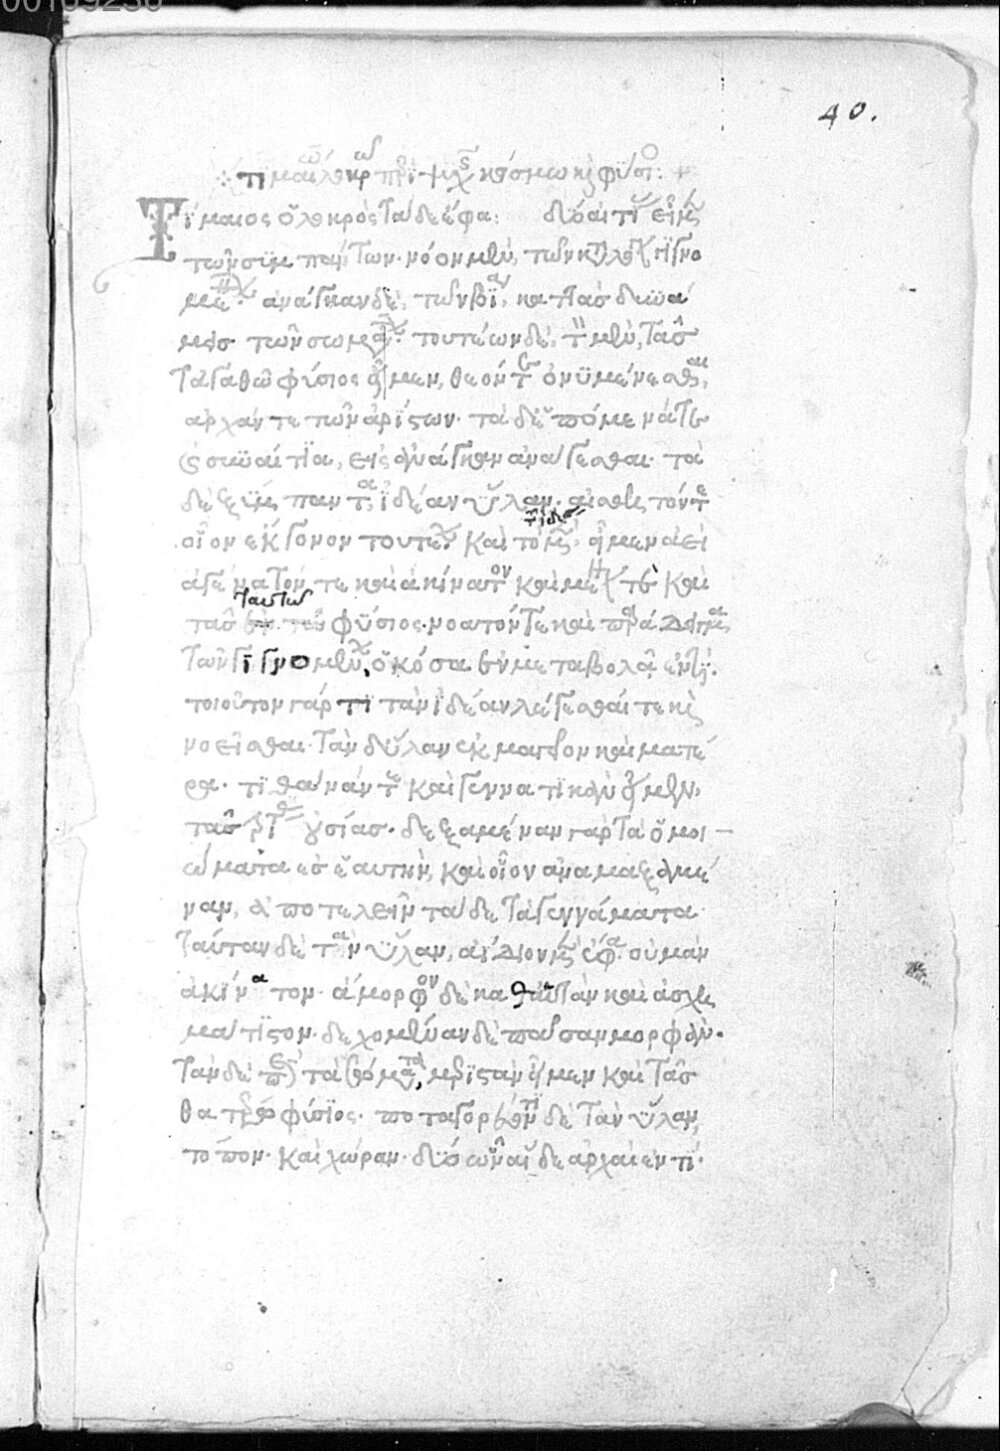 00109236
40.
τιμαίω λοκρῶ περὶ ψυχᾶς κόσμω καὶ φύσιος
Τίμαιος ὁ λοκρὸς τάδε ἔφα: δύο αἰτίας εἶμεν
τῶν συμπάντων· νόον μὲν, τῶν κατὰ λόγον γιγνο
μένων· ἀνάγκαν δὲ, τῶν βίᾳ, καττὰς δυνά
μεις τῶν σωμάτων· τουτέων δὲ, τὸν μὲν, τᾶς
τἀγαθῶ φύσιος εἶμεν, θεόν τε ὀνυμαίνεσθαι,
ἀρχάν τε τῶν ἀρίστων· τὰ δ' ἑπόμενά τε
καὶ συναίτια, εἰς ἀνάγκαν ἀνάγεσθαι· τὰ
δὲ ξύμπαντα, ἰδέαν ὕλαν· αἰσθητόν τε
οἷον ἔκγονον τουτέων· καὶ τὸ μὲν, εἶμεν ἀεὶ
ἀγένατόν τε καὶ ἀκίνατον καὶ μένον τε καὶ
τᾶς ταυτῶ φύσιος· νοατόν τε καὶ παράδειγμα
τῶν γιγνομένων, ὁκόσα ἐν μεταβολᾷ ἐντί·
τοιοῦτον γάρ τι τὰν ἰδέαν λέγεσθαί τε καὶ
νοεῖσθαι· τὰν δ' ὕλαν ἐκμαγεῖον καὶ ματέ
ρα· τιθάναν τε καὶ γεννατικὰν εἶμεν,
τᾶς τρίτας οὐσίας· δεξαμέναν γὰρ τὰ ὁμοι
ώματα ἐς ἑαυτὴν, καὶ οἷον ἀναμαξαμέ
ναν, ἀποτελεῖν τάδε τὰ γεννάματα·
ταύταν δὲ τὰν ὕλαν, ἀίδιον μὲν ἔφα· οὐ μὰν
ἀκίνατον· ἄμορφον δὲ καθ' αὑτὰν καὶ ἀσχη
μάτιστον· δεχομέναν δὲ πᾶσαν μορφάν·
τὰν δὲ περὶ τὰ σώματα, μεριστὰν εἶμεν καὶ τᾶς
θατέρω φύσιος· ποταγορεύοντι δὲ τὰν ὕλαν,
τόπον· καὶ χώραν· δύο ὦν αἵδε ἀρχαὶ ἐντί·